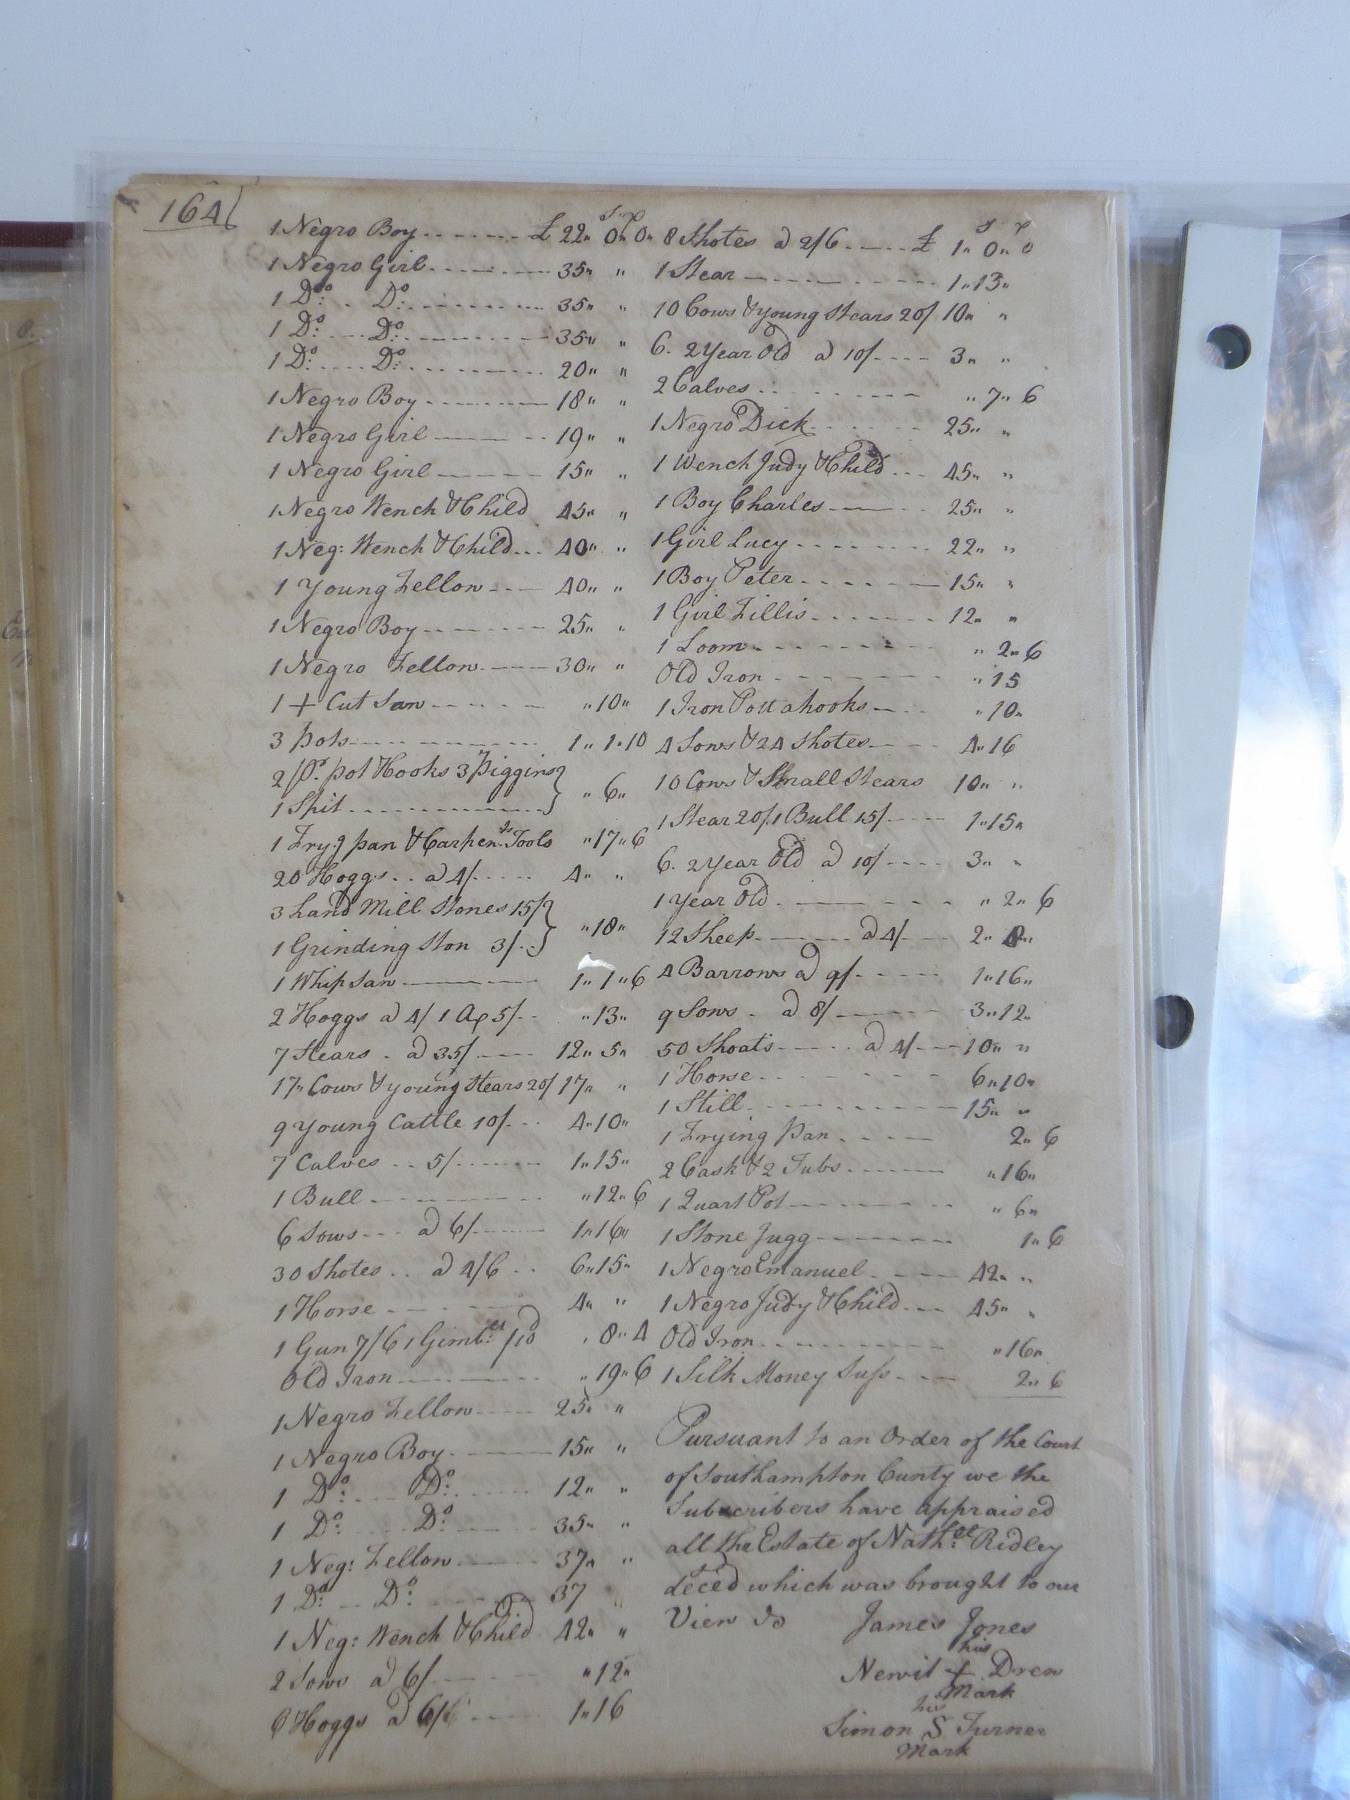 164
1 Negro Boy £ 22 " 0 " 0 "
1 Negro Girl 35 " "
1 Do. Do. 35 " "
1 Do. Do. 35 " "
1 Do. Do. 20 " "
1 Negro Boy 18 " "
1 Negro Girl 19 " "
1 Negro Girl 15 " "
1 Negro Wench & Child 45 " "
1 Neg: Wench & Child 40 " "
1 Young Fellow 40 " "
1 Negro Boy 25 " "
1 Negro Fellow 30 " "
1 + Cut Saw " 10 "
3 pots 1 " 1 " 10
2 pr. pot Hooks 3 Piggins
1 Spit " 6 "
1 Fryg pan & Carpenrs Tools " 17 " 6
20 Hoggs a 4/ 4 " "
3 hand Mill Stones 15/
1 Grinding Ston 3/ " 18 "
1 Whip Saw 1 " 1 " 6
2 Hoggs a 4/ 1 Do 5/ " 13 "
7 Stears a 35/ 12 " 5 "
17 " Cows & young Stears 20/ 17 " "
9 Young Cattle 10/ 4 " 10 "
7 Calves 5/ 1 " 15 "
1 Bull " 12 " 6
6 Sows a 6/ 1 " 16 "
30 Shotes a 4/6 6 " 15 "
1 Horse 4 " "
1 Gun 7/6 1 Gimlet /10 " 8 " 4
Old Iron " 19 " 6
1 Negro Fellow 25 " "
1 Negro Boy 15 " "
1 Do. Do. 12 " "
1 Do. Do. 35 " "
1 Neg: Fellow 37 " "
1 Do. Do. 37
1 Neg: Wench & Child 42 " "
2 Sows a 6/ " 12 "
6 Hoggs a 6/ 1 " 16
8 Shotes a 2/6 £ 1 " 0 " 0
1 Stear 1 " 13 "
10 Cows & young Stears 20/ 10 " "
6. 2 Year Old a 10/ 3 " "
2 Calves " 7 " 6
1 Negro Dick 25 " "
1 Wench Judy & Child 45 " "
1 Boy Charles 25 " "
1 Girl Lucy 22 " "
1 Boy Peter 15 " "
1 Girl Fillis 12 " "
1 Loom " 2 " 6
Old Iron " 15
1 Iron Pott a hooks " 10 "
4 Sows & 24 Shotes 4 " 16
10 Cows & Small Stears 10 " "
1 Stear 20/ 1 Bull 15/ 1 " 15 "
6. 2 Year Old a 10/ 3 " "
1 Year Old " 2 " 6
12 Sheep a 4/ 2 " 8 "
4 Barrows a 9/ 1 " 16 "
9 Sows a 8/ 3 " 12 "
50 Shoats a 4/ 10 " "
1 Horse 6 " 10 "
1 Still 15 " "
1 Frying Pan 2 " 6
2 Cask & 2 Tubs " 16 "
1 Quart Pot " 6 "
1 Stone Jugg 1 " 6
1 Negro Emanuel 42 " "
1 Negro Judy & Child 45 " "
Old Iron " 16 "
1 Silk Money 2 " 6
Pursuant to an Order of the Court
of Southampton Cunty we the
Subscribers have appraised
all the Estate of Nathll. Ridley
deced which was brought to our
View
James Jones
his
Newit + Drew
Mark
his
Simon S Turner
Mark